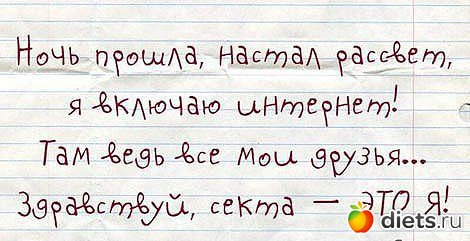 Ночь прошла, настал рассвет,
я включаю интернет!
Там ведь все мои друзья...
Здравствуй, секта — ЭТО Я!
diets.ru